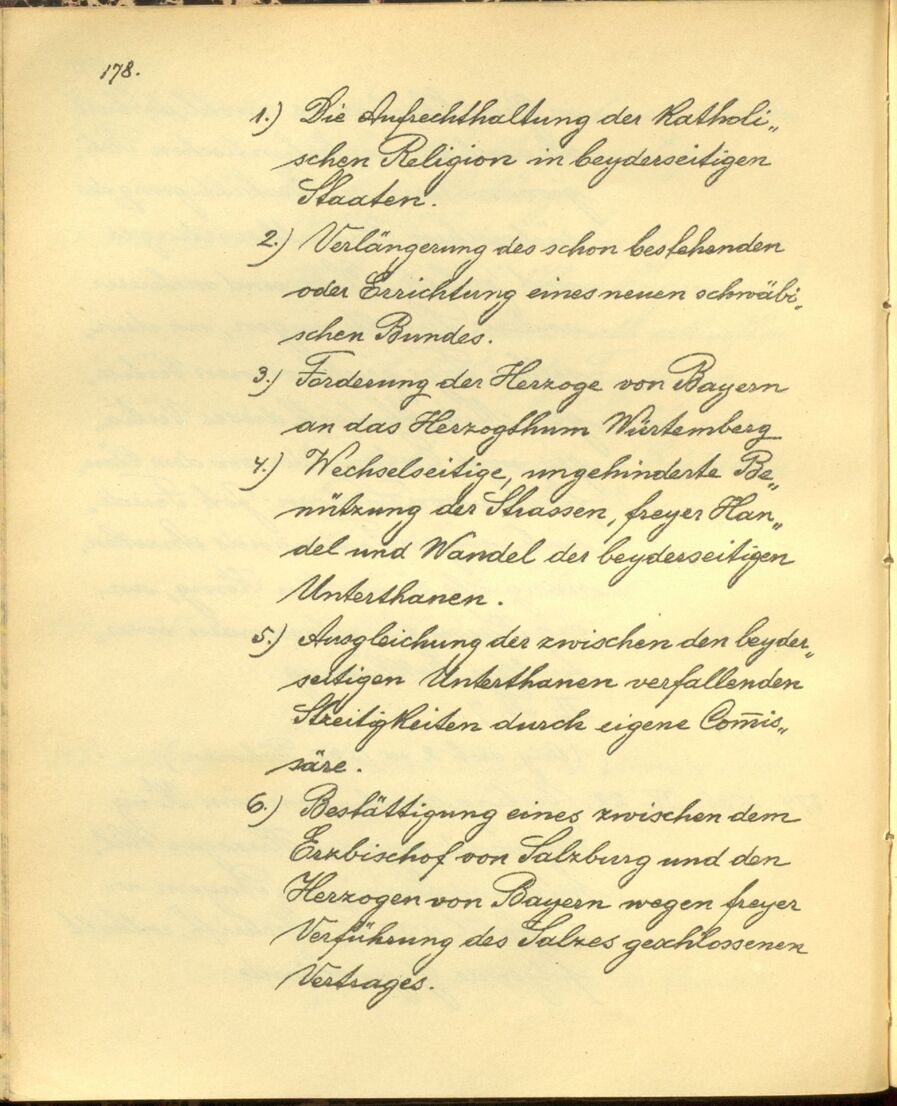 178.
1.) Die Aufrechthaltung der Katholi„
schen Religion in beyderseitigen
Staaten.
2.) Verlängerung des schon bestehenden
oder Errichtung eines neuen schwäbi„
schen Bundes.
3.) Forderung der Herzoge von Bayern
an das Herzogthum Würtemberg
4.) Wechselseitige, ungehinderte Be„
nützung der Strassen, freyer Han„
del und Wandel der beyderseitigen
Unterthanen.
5.) Ausgleichung der zwischen den beyder„
seitigen Unterthanen verfallenden
Streitigkeiten durch eigene Com̅is„
säre.
6.) Bestättigung eines zwischen dem
Erzbischof von Salzburg und den
Herzogen von Bayern wegen freyer
Verführung des Salzes geschlossenen
Vertrages.